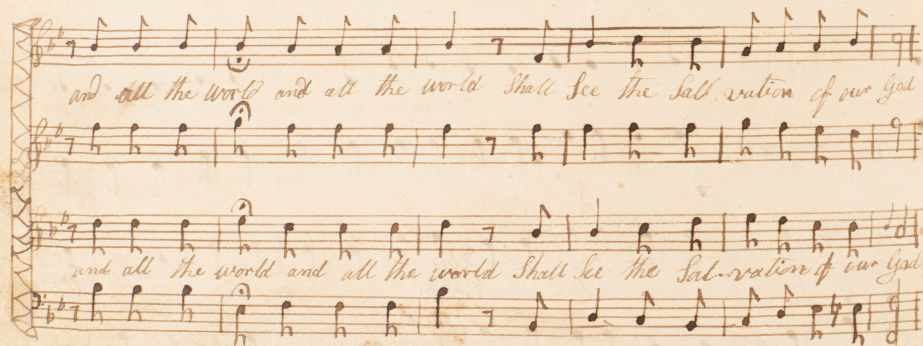 and all the world and all the world Shall See the Sal vation of our God
and all the world and all the world Shall See the Sal-vation of our God